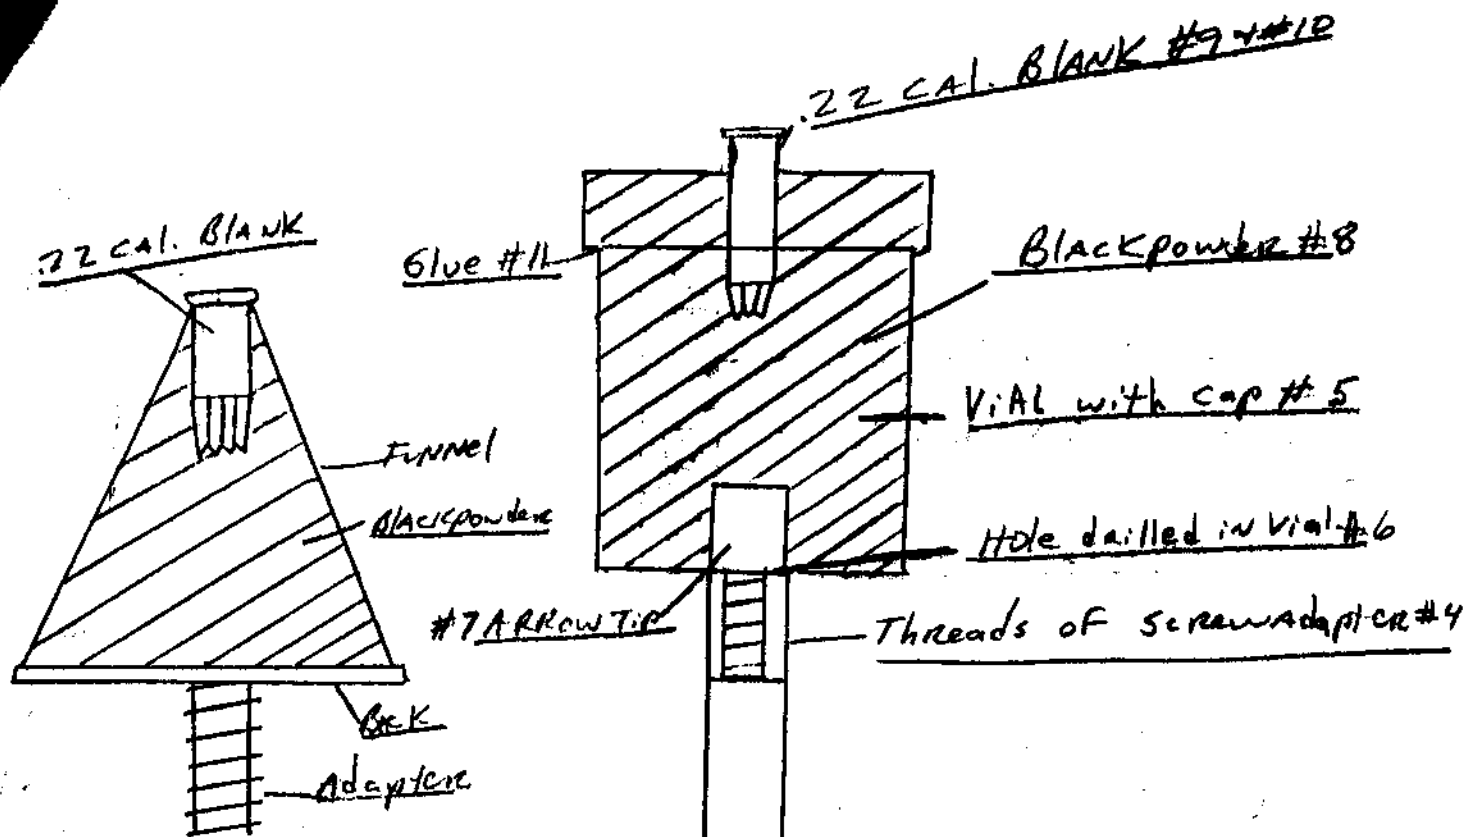 .22 CAL. BLANK #9 + #10
.22 CAL. BLANK
Glue #11
Blackpowder #8
Vial with cap #5
Funnel
Blackpowder
Hole drilled in Vial #6
#7 ARROW TIP
Threads of ScrewAdapter #4
Back
Adapter